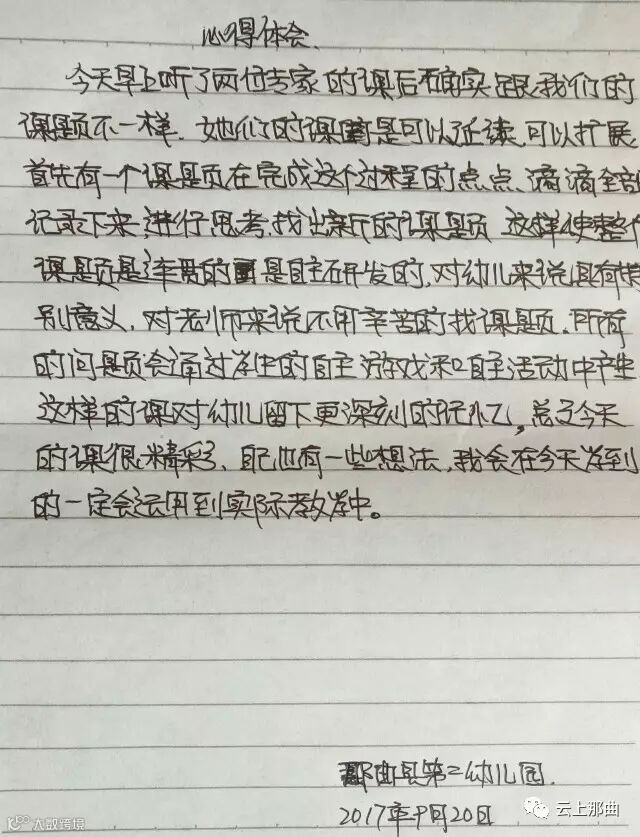 心得体会.
今天早上听了两位专家的课后确实跟我们的
课题不一样. 她们的课题是可以延续.可以扩展
首先有一个课题在完成这个过程的点点.滴滴全部
记录下来,进行思考,找出新的课题 这样使整个
课题是连贯的 是自主研发的. 对幼儿来说具有特
别意义. 对老师来说不用辛苦的找课题. 所有
的问题会通过学生的自主游戏和自主活动中产生
这样的课对幼儿留下更深刻的记忆, 总之今天
的课很精彩、自己也有一些想法, 我会在今天学到
的一定会运用到实际教学中。
那曲县第二幼儿园.
2017年9月20日
云上那曲
大数跨境